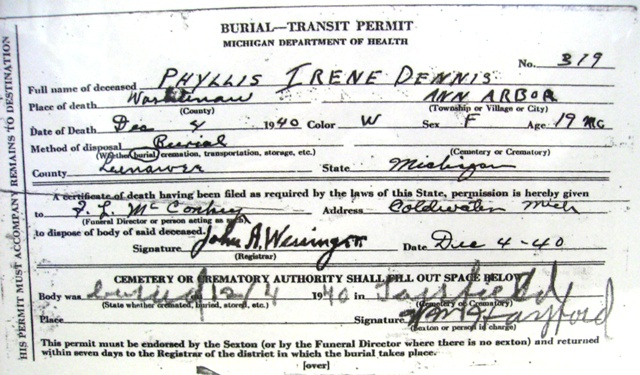 BURIAL—TRANSIT PERMIT
MICHIGAN DEPARTMENT OF HEALTH
No. 319
Full name of deceased PHYLLIS IRENE DENNIS
Place of death Washtenaw ANN ARBOR
(County) (Township or Village or City)
Date of Death Dec 4 1940 Color W Sex F Age 19
Method of disposal Burial
(Whether burial, cremation, transportation, storage, etc.) (Cemetery or Crematory)
County Lenawee State Michigan
A certificate of death having been filed as required by the laws of this State, permission is hereby given
to Address Coldwater Mich
(Funeral Director or person acting as such)
to dispose of body of said deceased.
Signature John A. Date Dec 4-40
(Registrar)
CEMETERY OR CREMATORY AUTHORITY SHALL FILL OUT SPACE BELOW
Body was buried 12/4 1940 in Fairfield
(State whether cremated, buried, stored, etc.) (Cemetery or Crematory)
Place Signature Hayford
(Sexton or person in charge)
This permit must be endorsed by the Sexton (or by the Funeral Director where there is no sexton) and returned
within seven days to the Registrar of the district in which the burial takes place.
[over]
HIS PERMIT MUST ACCOMPANY REMAINS TO DESTINATION